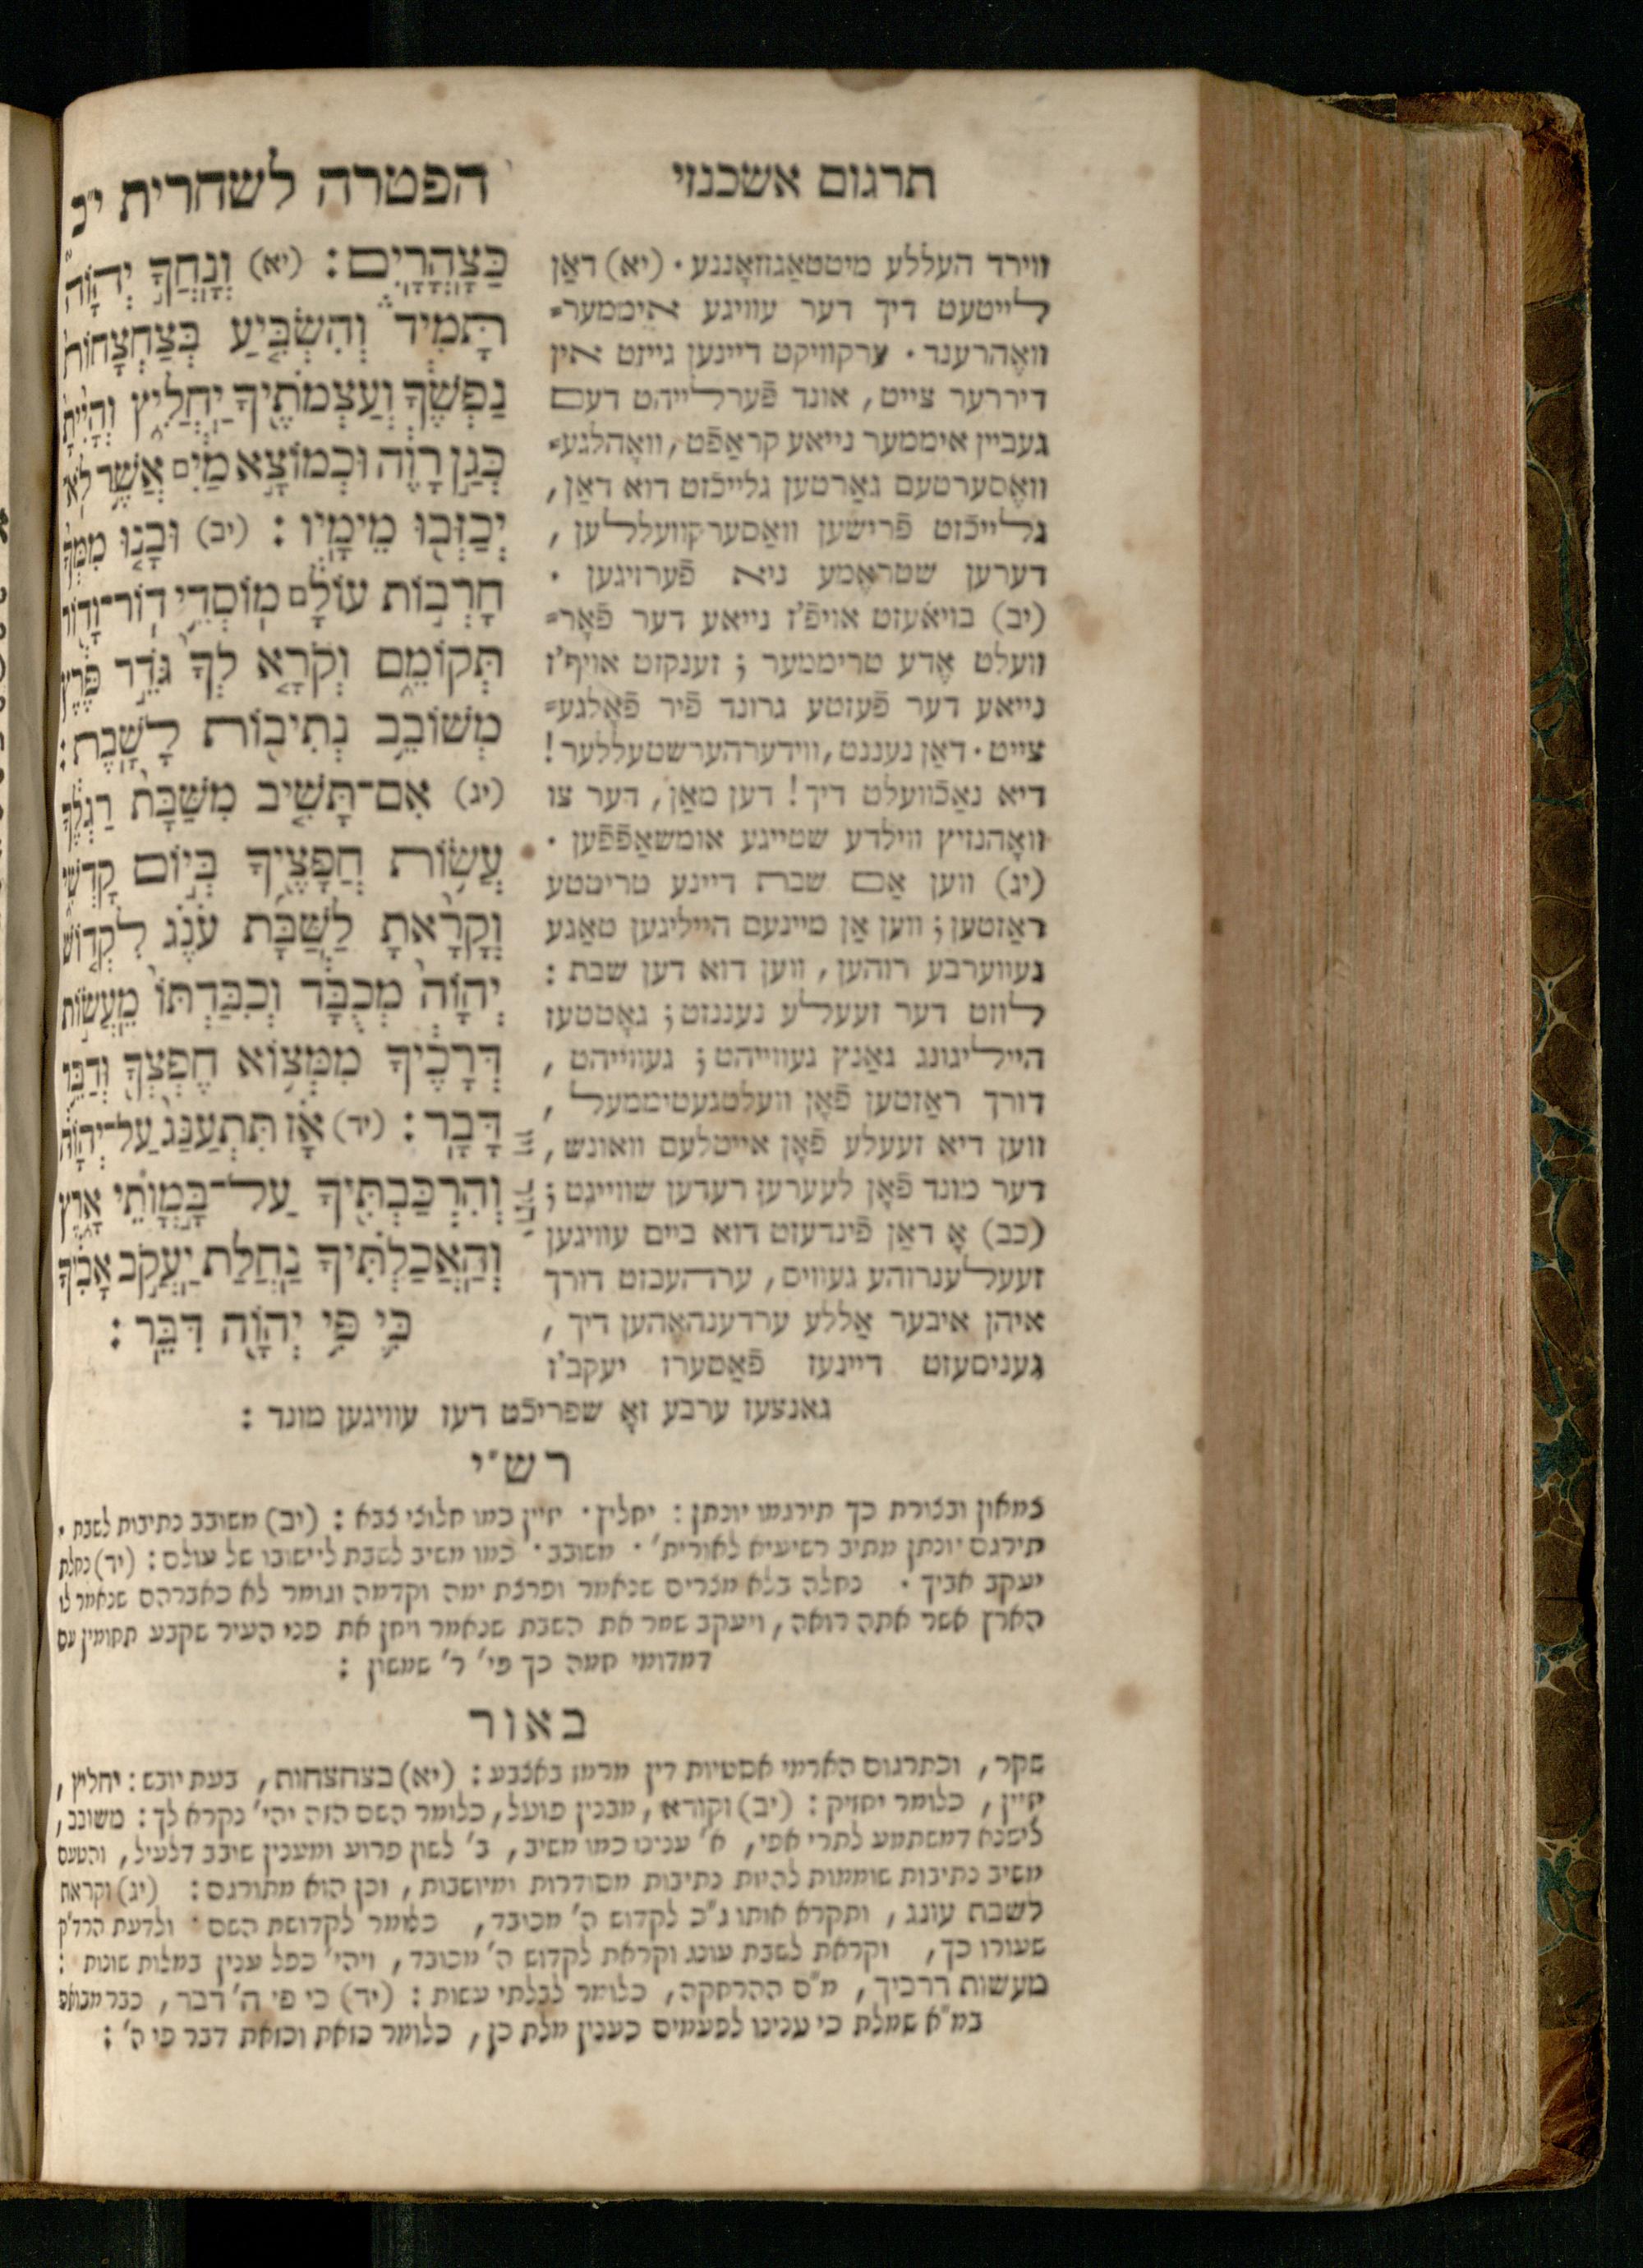 תרגום אשכנזי
הפטרה לשחרית י״כ
כַּצָּהֳרָיִם : (יא) וְנָחֲךָ יְהוָֹה
תָּמִיד וְהִשְׂבִּיעַ בְּצַחְצָחוֹת
נַפְשֶׁךָ וְעַצְמֹתֶיךָ יַחֲלִיץ וְהָיִיתָ
כְּגַן רָוֶה וּכְמוֹצָא מַיִם אֲשֶׁר לֹא
יְכַזְּבוּ מֵימָיו : (יב) וּבָנוּ מִמְּךָ
חָרְבוֹת עוֹלָם מוֹסְדֵי דוֹר־וָדוֹר
תְּקוֹמֵם וְקֹרָא לְךָ גֹּדֵר פֶּרֶץ
מְשׁוֹבֵב נְתִיבוֹת לָשָׁבֶת :
(יג) אִם־תָּשִׁיב מִשַּׁבָּת רַגְלֶךָ
עֲשׂוֹת חֲפָצֶיךָ בְּיוֹם קָדְשִׁי
וְקָרָאתָ לַשַּׁבָּת עֹנֶג לִקְדוֹשׁ
יְהוָֹה מְכֻבָּד וְכִבַּדְתּוֹ מֵעֲשׂוֹת
דְּרָכֶיךָ מִמְּצוֹא חֶפְצְךָ וְדַבֵּר
דָּבָר : (יד) אָז תִּתְעַנַּג עַל־יְהוָֹה
וְהִרְכַּבְתִּיךָ עַל־בָּמֳותֵי אָרֶץ
וְהַאֲכַלְתִּיךָ נַחֲלַת יַעֲקֹב אָבִיךָ
כִּי פִּי יְהוָֹה דִּבֵּר :
ווירד העללע מיטטאַגזאָננע · (יא) דאַן
לייטעט דיך דער עוויגע איממער=
וואֶהרענד · ערקוויקט דיינען גייזט אין
דיררער צייט, אונד פֿערלייהט דעם
געביין איממער נייאע קראַפֿט, וואָהלגע=
וואֶסערטעם גאַרטען גלייכֿזט דוא דאַן,
גלייכֿזט פֿרישען וואַסערקוועללען,
דערען שטראָמע ניא פֿערזיגען ·
(יב) בויאעזט אויפֿ'ז נייאע דער פֿאָר=
וועלט אֶדע טריממער ; זענקזט אויף'ז
נייאע דער פֿעזטע גרונד פֿיר פֿאָלגע=
צייט · דאַן נעננט, ווידערהערשטעללער !
דיא נאַכֿוועלט דיך ! דען מאַן, דער צו
וואָהנזיץ ווילדע שטייגע אומשאַפֿפֿען ·
(יג) ווען אַם שבת דיינע טריטטע
ראַזטען ; ווען אַן מיינעם הייליגען טאַגע
געווערבע רוהען, ווען דוא דען שבת :
לוזט דער זעעלע נעננזט ; גאָטטעז
הייליגונג גאַנץ געווייהט ; געווייהט,
דורך ראַזטען פֿאָן וועלטגעטיממעל,
ווען דיא זעעלע פֿאָן אייטלעם וואונש,
דער מונד פֿאָן לעערען רעדען שווייגט ;
(כב) אָ דאַן פֿינדעזט דוא ביים עוויגען
זעעלענרוהע געוויס, ערהעבזט דורך
איהן איבער אַללע ערדענהאֶהען דיך,
געניסעזט דיינעז פֿאַטערז יעקב'ז
גאנצעז ערבע זאָ שפריכֿט דעז עוויגען מונד :
רש״י
כמאון ובצורת כך תירגמו יונתן : יחליץ · יזיין כמו חלוצי צבא : (יב) משובב נתיבות לשבת ·
תירגם יונתן מתיב רשיעיא לאורית' · משובב · כמו משיב לשבת ליישובו של עולם : (יד) נחלת
יעקב אביך · נחלה בלא מצרים שנאמר ופרצת ימה וקדמה וגומר לא כאברהם שנאמר לו
הארץ אשר אתה רואה, ויעקב שמר את השבת שנאמר ויחן את פני העיר שקבע תחומין עם
דמדומי חמה כך פי' ר' שמשון :
באור
שקר, וכתרגום הארמי אסטיות דין מרמז באצבע : (יא) בצחצחות, בעת יובש : יחליץ,
יזיין, כלומר יחזיק : (יב) וקורא, מבנין פועל, כלומר השם הזה יהי' נקרא לך : משובב,
לישנא דמשתמע לתרי אפי, א' ענינו כמו משיב, ב' לשון פרוע ומענין שובב דלעיל, והטעם
משיב נתיבות שוממות להיות נתיבות מסודרות ומיושבות, וכן הוא מתורגם : (יג) וקראת
לשבת עונג, ותקרא אותו ג״כ לקדוש ה' מכובד, כלומר לקדושת השם · ולדעת הרד״ק
שעורו כך, וקראת לשבת עונג וקראת לקדוש ה' מכובד, ויהי' כפל ענין במלות שונות :
מעשות דרכיך, מ״ם ההרחקה, כלומר לבלתי עשות : (יד) כי פי ה' דבר, כבר מבואר
במ״א שמלת כי ענינו לפעמים כענין מלת כן, כלומר כזאת וכזאת דבר פי ה' :